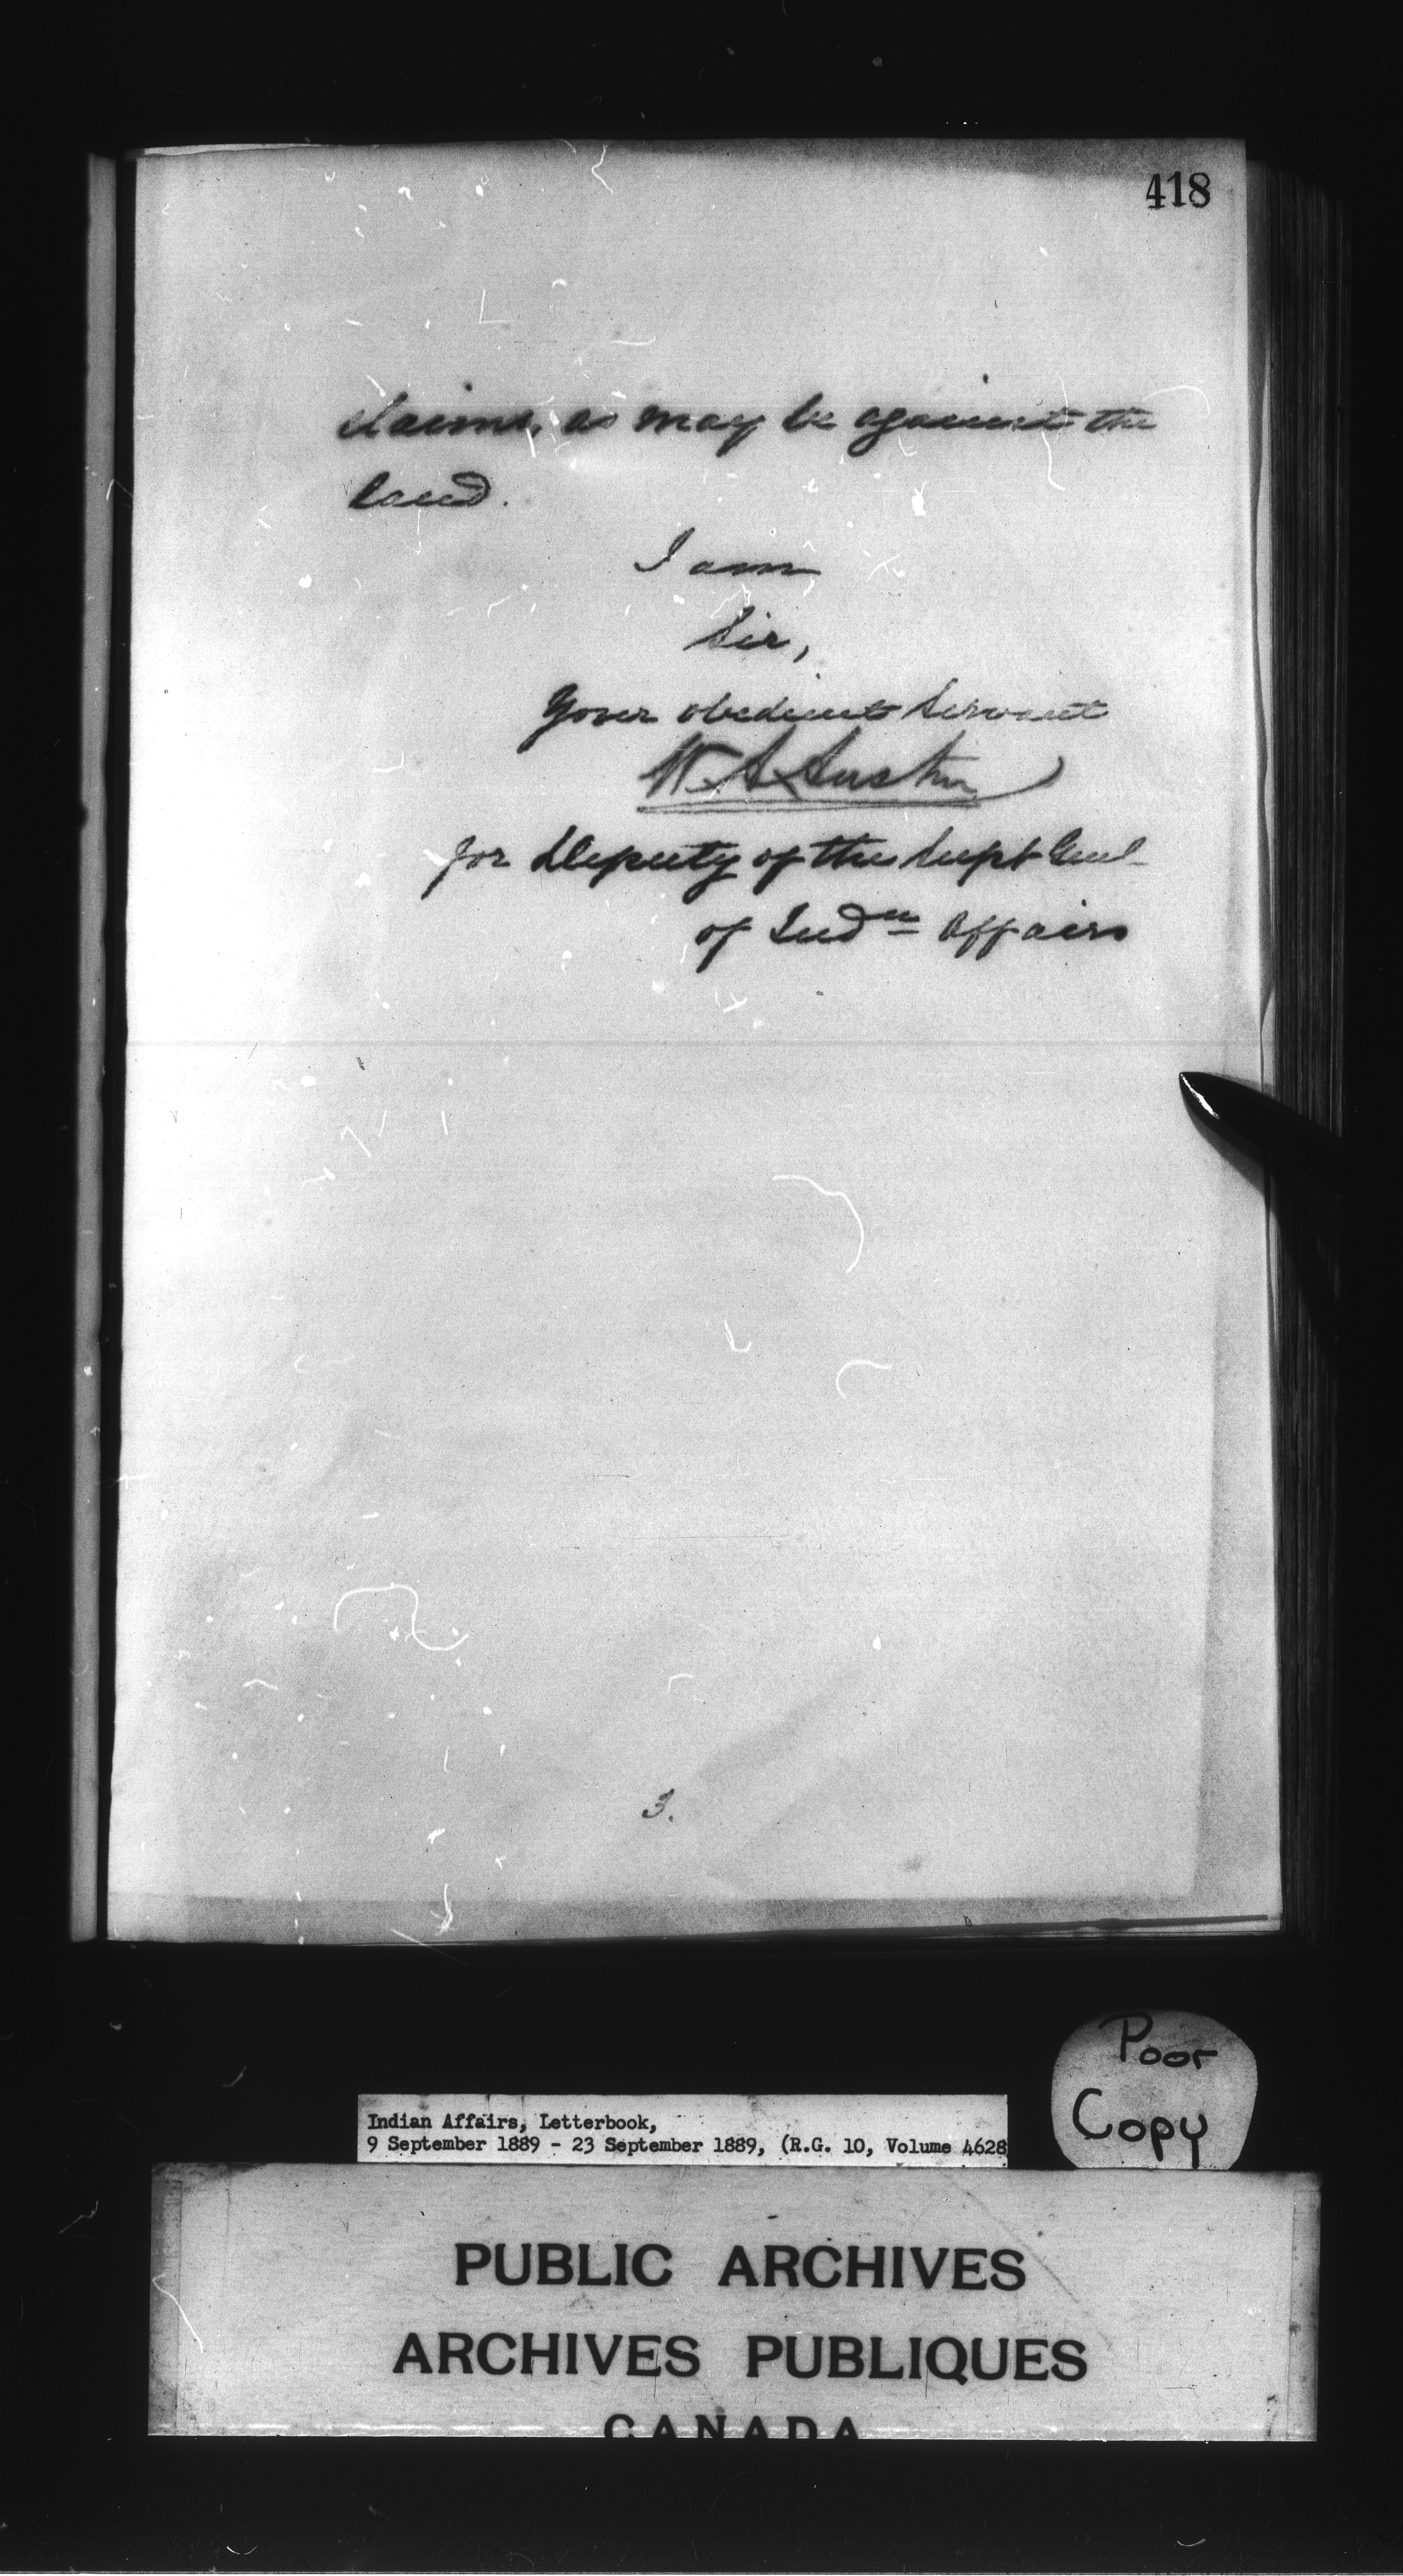 418
claims, as may be against the
land.
I am
Sir,
Your obedient Servant
W A Austin
for Deputy of the Supt Genl
of Indn Affairs
3.
Poor
Copy
Indian Affairs, Letterbook,
9 September 1889 - 23 September 1889, (R.G. 10, Volume 4628
PUBLIC ARCHIVES
ARCHIVES PUBLIQUES
CANADA